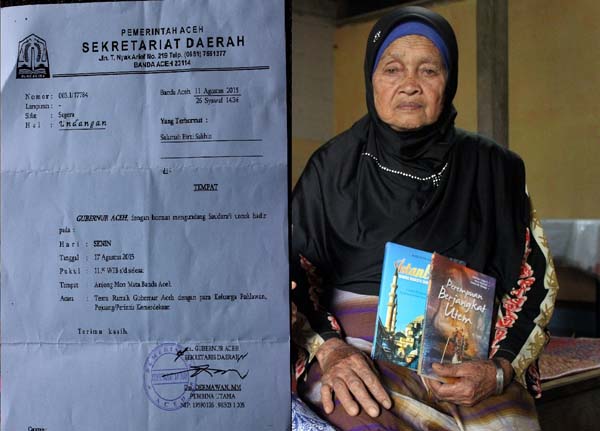 PEMERINTAH ACEH
SEKRETARIAT DAERAH
Jln. T. Nyak Arief No. 219 Telp. (0651) 7551377
BANDA ACEH 23114
Nomor : 003.1/17784
Lampiran : -
Sifat : Segera
Hal : Undangan
Banda Aceh, 11 Agustus 2015
26 Syawal 1436
Yang Terhormat :
Salamah Binti
di-
TEMPAT
GUBERNUR ACEH, dengan hormat mengundang Saudara/i untuk hadir
pada :
Hari : SENIN
Tanggal : 17 Agustus 2015
Pukul : WIB s/d selesai
Tempat : Anjong Mon Mata Banda Aceh.
Acara : Temu Ramah Gubernur Aceh dengan para Keluarga Pahlawan,
Pejuang/Perintis Kemerdekaan
Terima kasih.
GUBERNUR ACEH
SEKRETARIS DAERAH
DERMAWAN, MM
PEMBINA UTAMA
Perempuan
Berjangkat
Utem